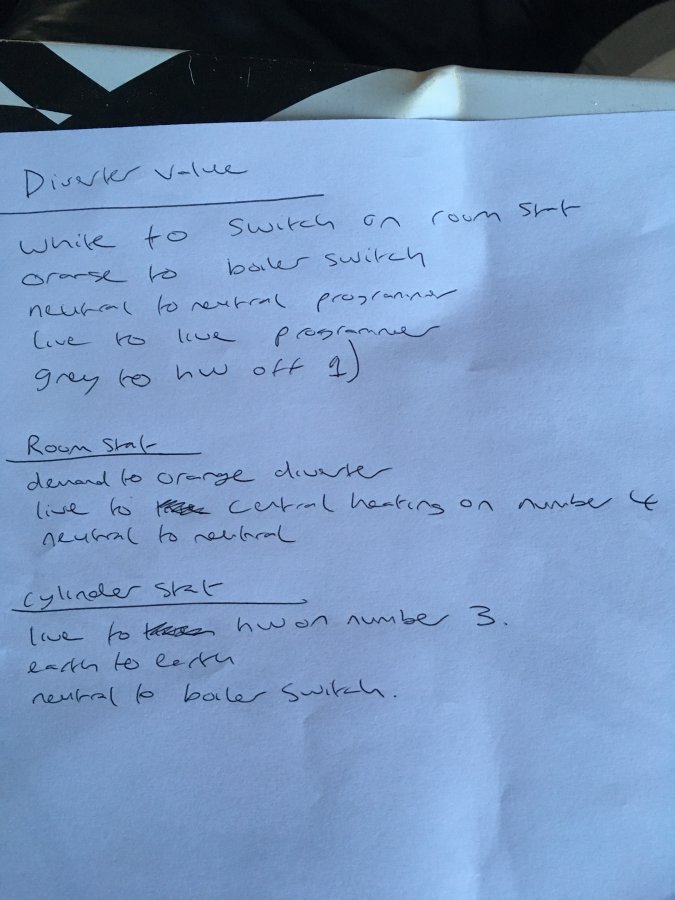 Diverter valve
white to switch on room stat
orange to boiler switch
neutral to neutral programmer
live to live programmer
grey to hw off 1)
Room stat
demand to orange diverter
live to central heating on number 4
neutral to neutral
cylinder stat
live to hw on number 3.
earth to earth
neutral to boiler switch.